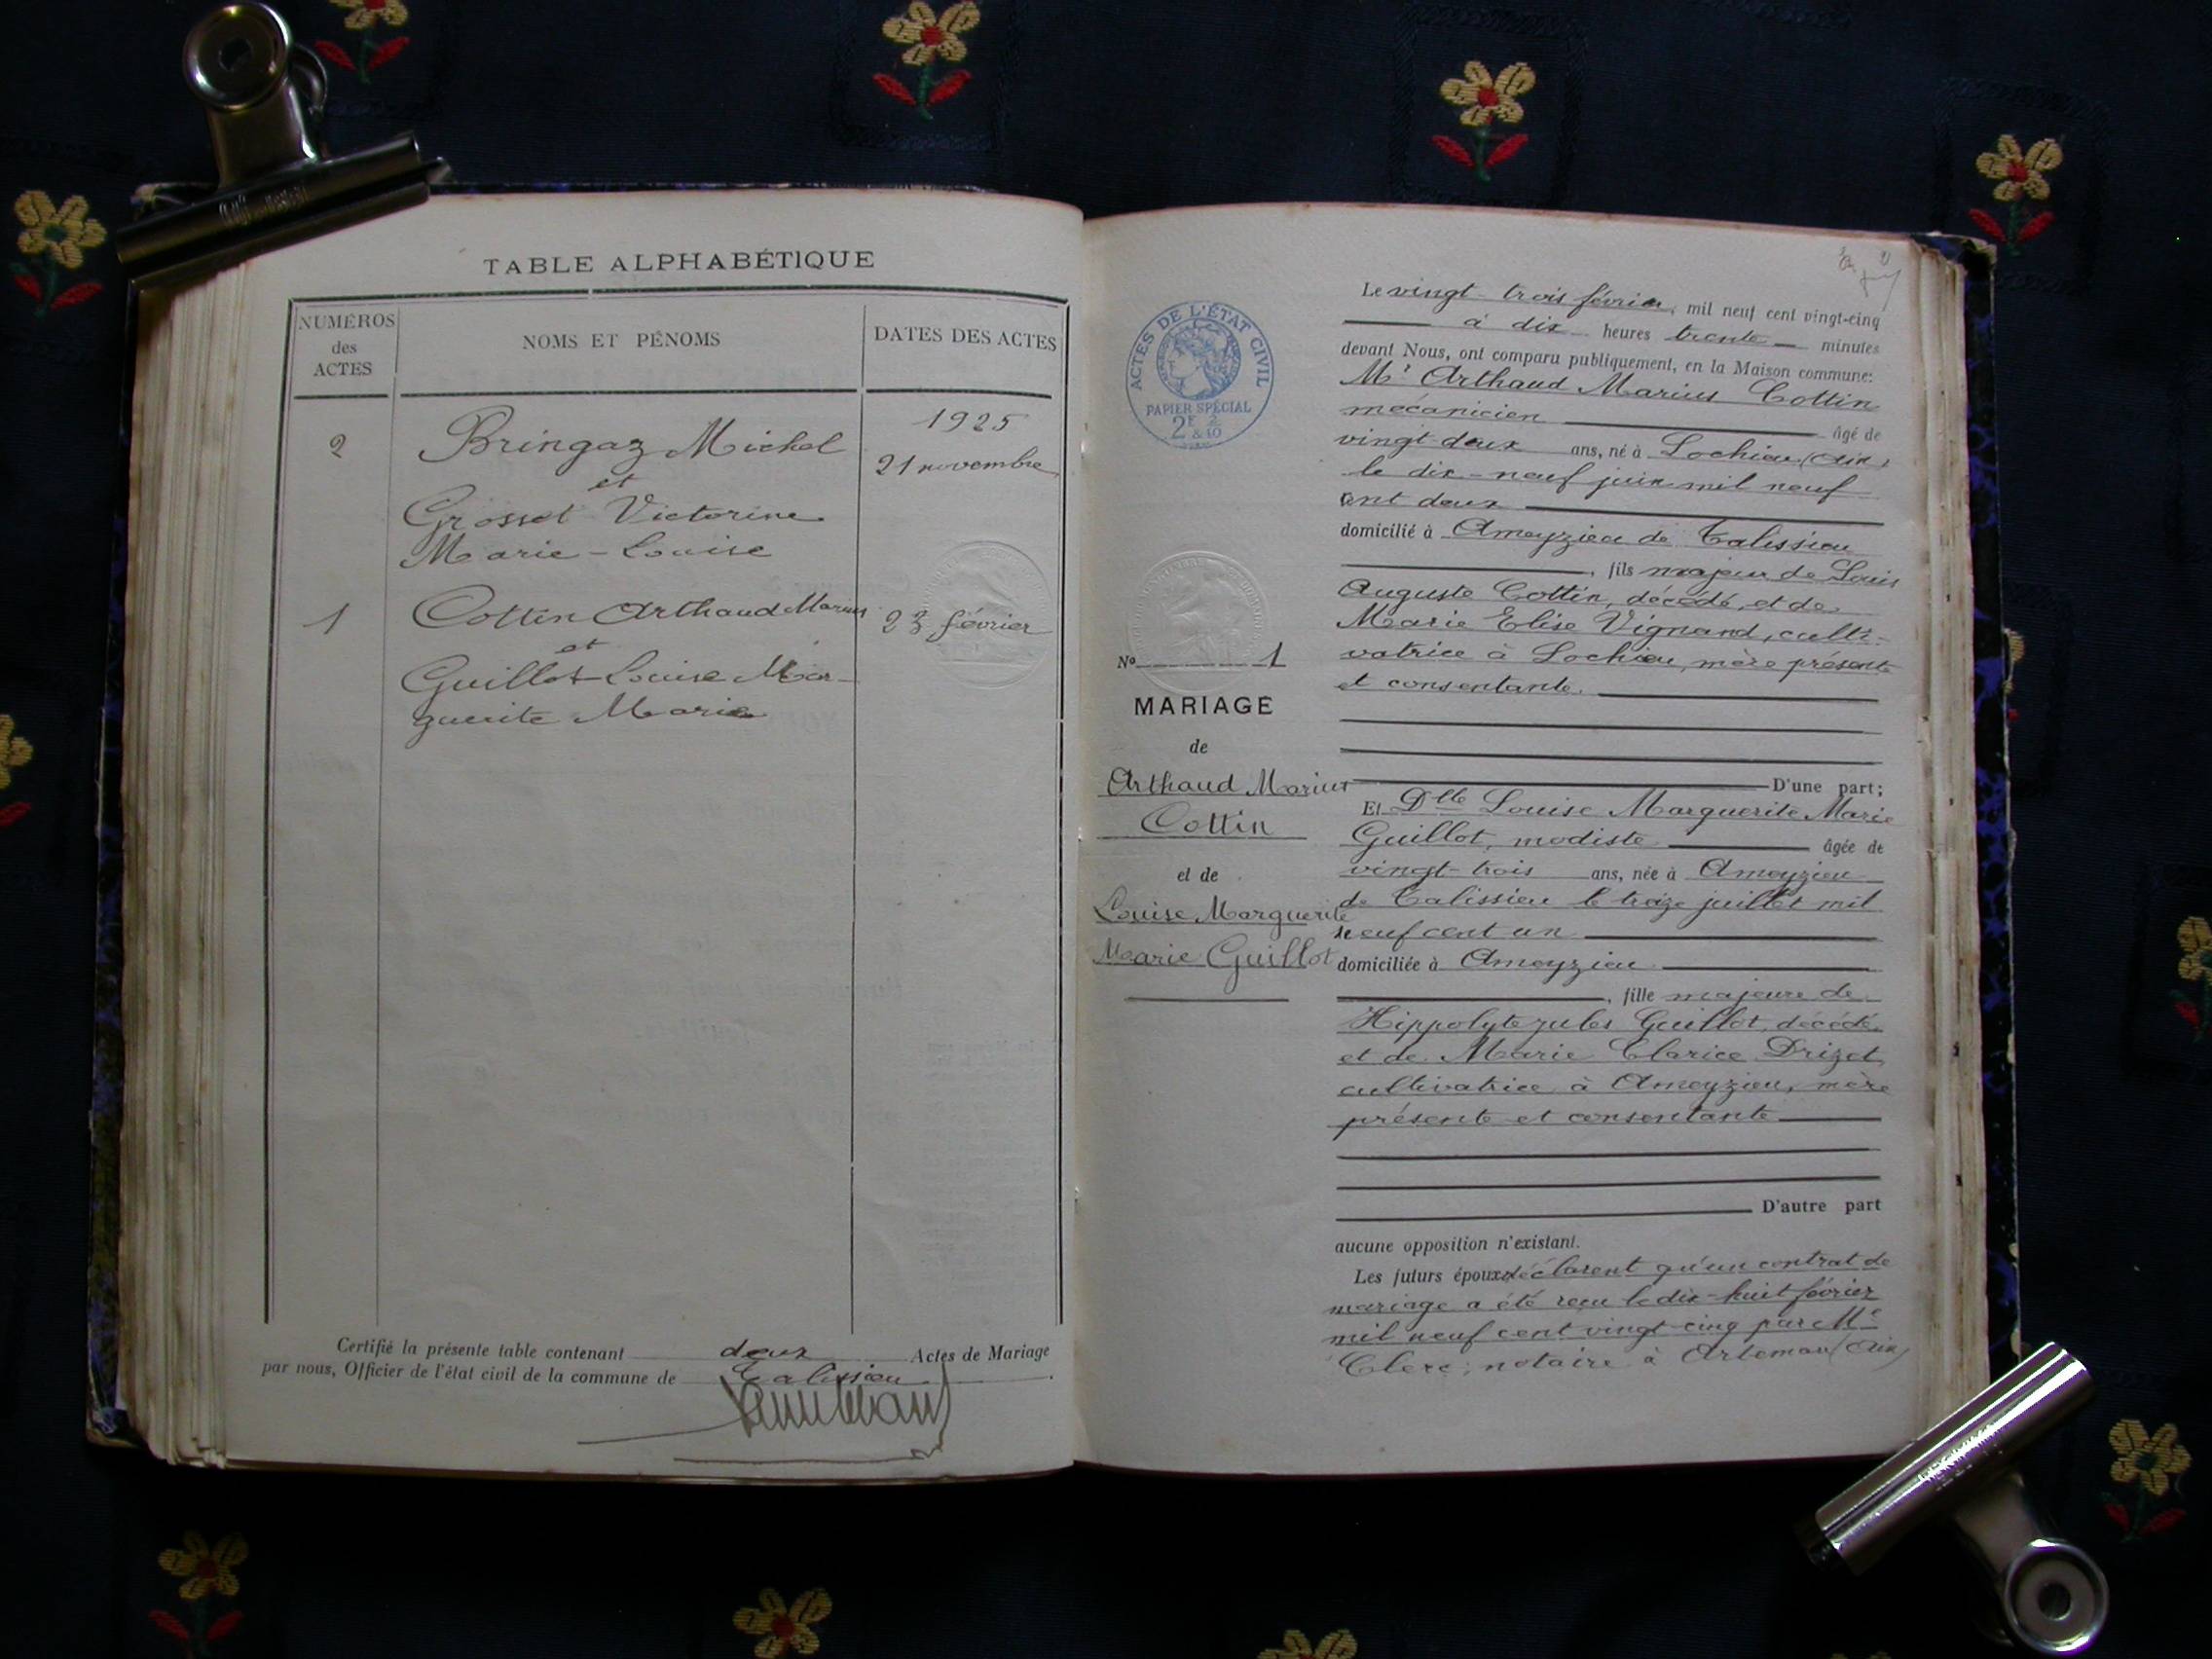 TABLE ALPHABÉTIQUE
NUMÉROS
des
ACTES
NOMS ET PÉNOMS
DATES DES ACTES
1925
2
Bringaz Michel
21 novembre
et
Grosset Victorine
Marie-Louise
1
Cottin Arthaud Marius
23 février
et
Guillot Louise Mar-
guerite Marie
Certifié la présente table contenant deux Actes de Mariage
par nous, Officier de l'état civil de la commune de Talissieu.
ACTES DE L'ÉTAT CIVIL
PAPIER SPÉCIAL
2F
&
No 1
MARIAGE
de
Arthaud Marius
Cottin
et de
Louise Marguerite
Marie Guillot
Le vingt-trois février, mil neuf cent vingt-cinq
à dix heures trente minutes
devant Nous, ont comparu publiquement, en la Maison commune:
Mr Arthaud Marius Cottin
mécanicien âgé de
vingt-deux ans, né à Lochieu (Ain)
le dix-neuf juin mil neuf
cent deux
domicilié à Ameyzieu de Talissieu
, fils majeur de Louis
Auguste Cottin, décédé, et de
Marie Elise Vignand, culti-
vatrice à Lochieu, mère présente
et consentante.
D'une part;
Et Dlle Louise Marguerite Marie
Guillot, modiste âgée de
vingt-trois ans, née à Ameyzieu
de Talissieu le treize juillet mil
neuf cent un
domiciliée à Ameyzieu
, fille majeure de
Hippolyte Jules Guillot, décédé,
et de Marie Clarice Drizet,
cultivatrice à Ameyzieu, mère
présente et consentante
D'autre part
aucune opposition n'existant.
Les futurs époux déclarent qu'un contrat de
mariage a été reçu le dix-huit février
mil neuf cent vingt-cinq par Me
Clerc, notaire à Artemare (Ain)